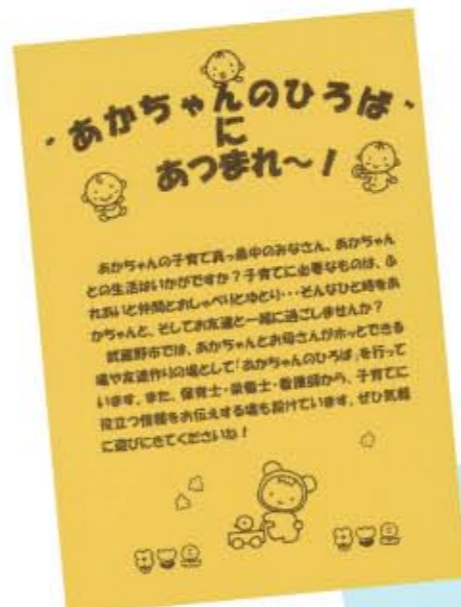 ・あかちゃんのひろば・
に
あつまれ～！
あかちゃんの子育て真っ最中のみなさん、あかちゃん
との生活はいかがですか？子育てに必要なものは、ふ
れあいと仲間とおしゃべりとゆとり・・・そんなひと時をあ
かちゃんと、そしてお友達と一緒に過ごしませんか？
武蔵野市では、あかちゃんとお母さんがホッとできる
場や友達作りの場として「あかちゃんのひろば」を行って
います。また、保育士・栄養士・看護師から、子育てに
役立つ情報をお伝えする場も設けています。ぜひ気軽
に遊びにきてくださいね！